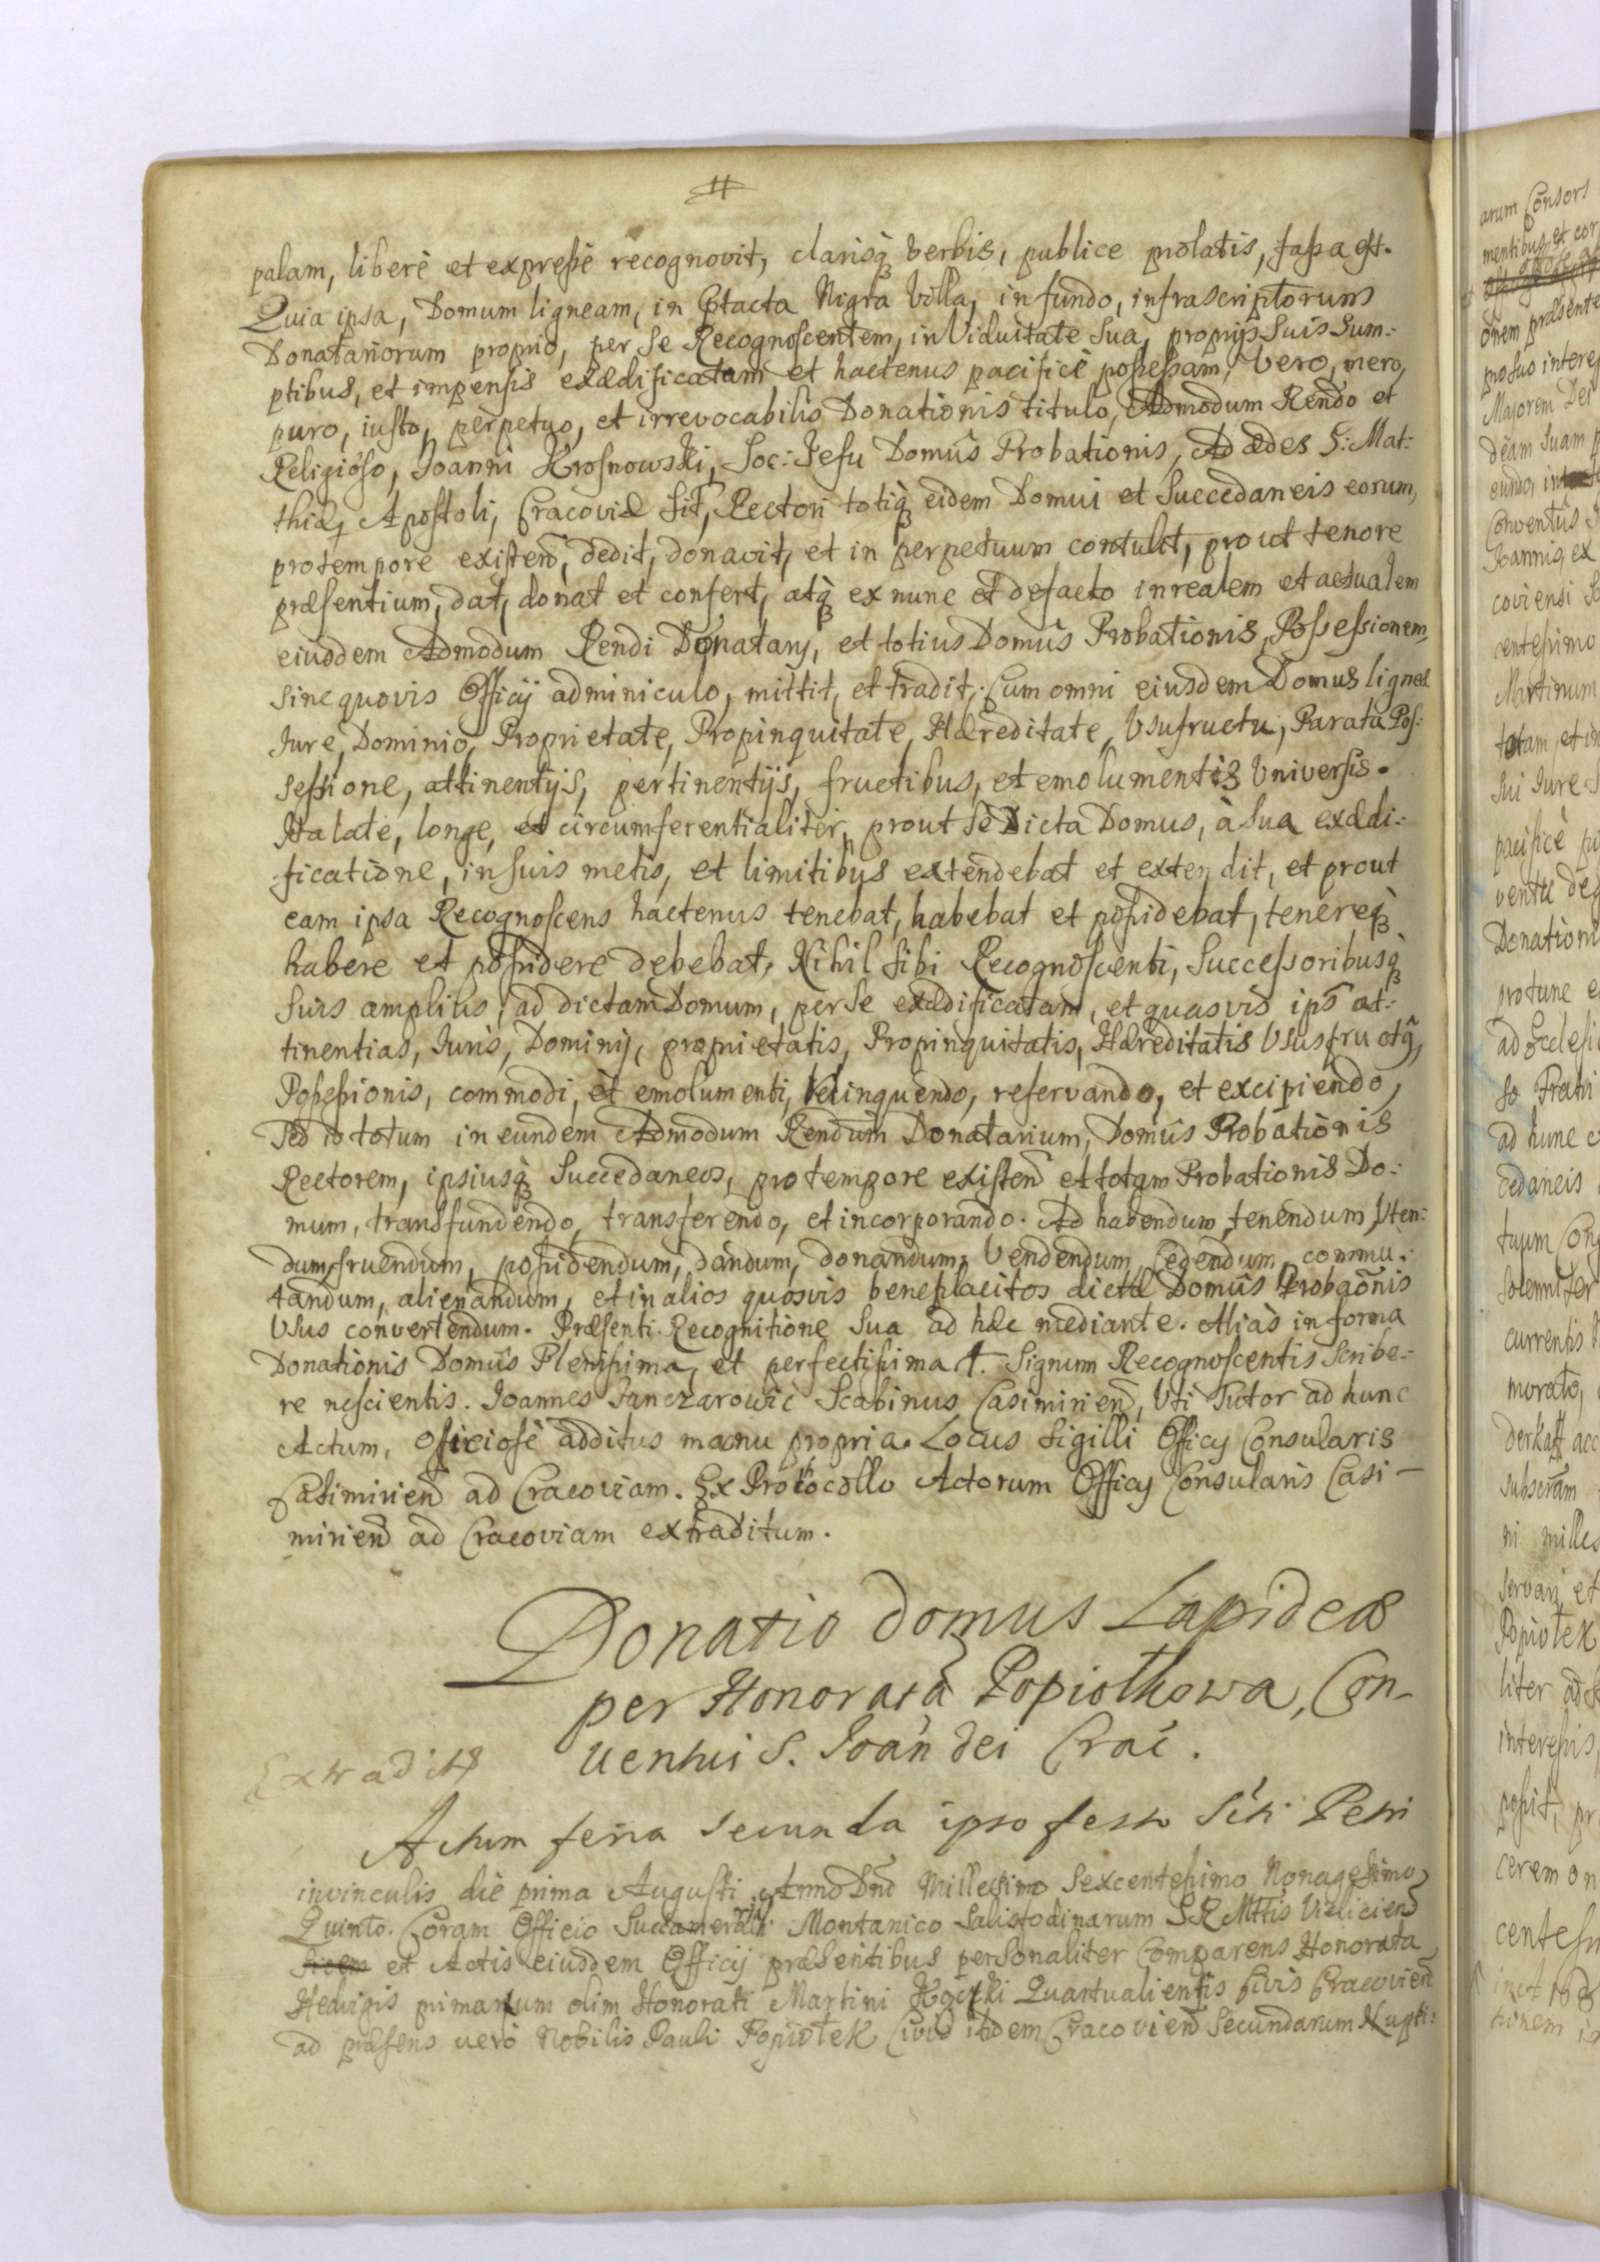 palam, liberè et expressè recognovit, clarisq verbis, publice prolatis, fassa est.
Quia ipsa, Domum ligneam, in Ptacta Nigra Villa, in fundo, infrascriptorum
Donatariorum proprio, per se Recognoscentem, in Viduitate Sua, proprijs Suis Sum-:
ptibus, et impensis exædificatam et hactenus pacificè possessam, Vero, mero,
puro, iusto, perpetuo, et irrevocabilis Donationis titulo, Admodum Rendo et
Religioso, Joanni Krosnowski, Soc: Jesu Domûs Probationis, Ad ædes S: Mat:
thiæ, Apostoli, Cracoviæ Sit, Rectori totiq eidem Domui et Succedaneis eorum,
protempore existen, dedit, donavit, et in perpetuum contulit, prout tenore
præsentium, dat, donat et confert, atq ex nunc et defacto in realem et actualem
eiusdem Admodum Rendi Donatarij, et totius Domûs Probationis, Possessionem,
Sine quovis Officij adminiculo, mittit, et tradit, Cum omni eiusdem Domus ligneæ
Iure, Dominio, Proprietate, Propinquitate, Hæreditate, Vsufructu, Parata Pos:
sessione, attinentijs, pertinentijs, fructibus, et emolumentis Universis.
Ita late, longe, et circumferentialiter, prout se Dicta Domus, à Sua exædi-:
ficatione, in suis metis, et limitibus extendebat et extendit, et prout
eam ipsa Recognoscens hactenus tenebat, habebat et possidebat, tenereq
habere et possidere debebat, Nihil sibi Recognoscenti, Successoribusq
suis amplius, ad dictam Domum, per se exædificatam, et quasvis ips at-:
tinentias, Iuris, Dominij, proprietatis, Propinquitatis, Hæreditatis Vsusfructq,
Possessionis, commodi, et emolumenti, Relinquendo, reservando, et excipiendo,
Sed id totum in eundem Admodum Rendum Donatarium, Domûs Probationis
Rectorem, ipsiusq Succedaneos, pro tempore existen et totam Probationis Do-:
mum, transfundendo, transferendo, et incorporando. Ad habendum, tenendum, Vten:
dum, fruendum, possidendum, dandum, donandum, Vendendum, Cedendum, commu-:
tandum, alienandum, et in alios quosvis beneplacitos dictæ Domûs Probaonis
Vsus convertendum. Præsenti Recognitione Sua ad hæc mediante. Aliàs in forma
Donationis Domûs Plenissima, et perfectissima †. Signum Recognoscentis Scribe-:
re nescientis. Joannes Sanczarowic Scabinus Casimirien, Vti Tutor ad hunc
Actum, officiosè additus manu propria. Locus Sigilli Officij Consularis
Casimirien ad Cracoviam. Ex Protocollo Actorum Officij Consularis Casi-
mirien ad Cracoviam extraditum.
Donatio domus Lapideæ
per Honoratã Popiołkowa, Con-
uentui S. Joan dei Crac.
Extradit
Actum feria secunda ipso festo Scti Petri
in vinculis die prima Augusti Anno Dni Millesimo Sexcentesimo Nonagesimo
Quinto. Coram Officio Succamerali Montanico Salisfodinarum S R Mttis Vielicien
et Actis eiusdem Officij præsentibus personaliter Comparens Honorata
Hedvigis primarum olim Honorati Martini Quartualiensis Civis Cracovien
ad præsens uerò Nobilis Pauli Popiołek Civis itidem Cracovien Secundarum Nupti:
arum Consors
mentibus et cor
onem præsente
Majorem Dei
deam Suam
Conventûs
Joannis ex
coviensi
centesimo
Martinum
totam, et in
sui Iure
pacificè
Donationi
protunc
ad Ecclesi
ad hunc
cedaneis
tuum
currentis
morato,
subscram
ni milles
servari, et
Popiołek
liter
interessis,
possit, pr
ceremon
centesim